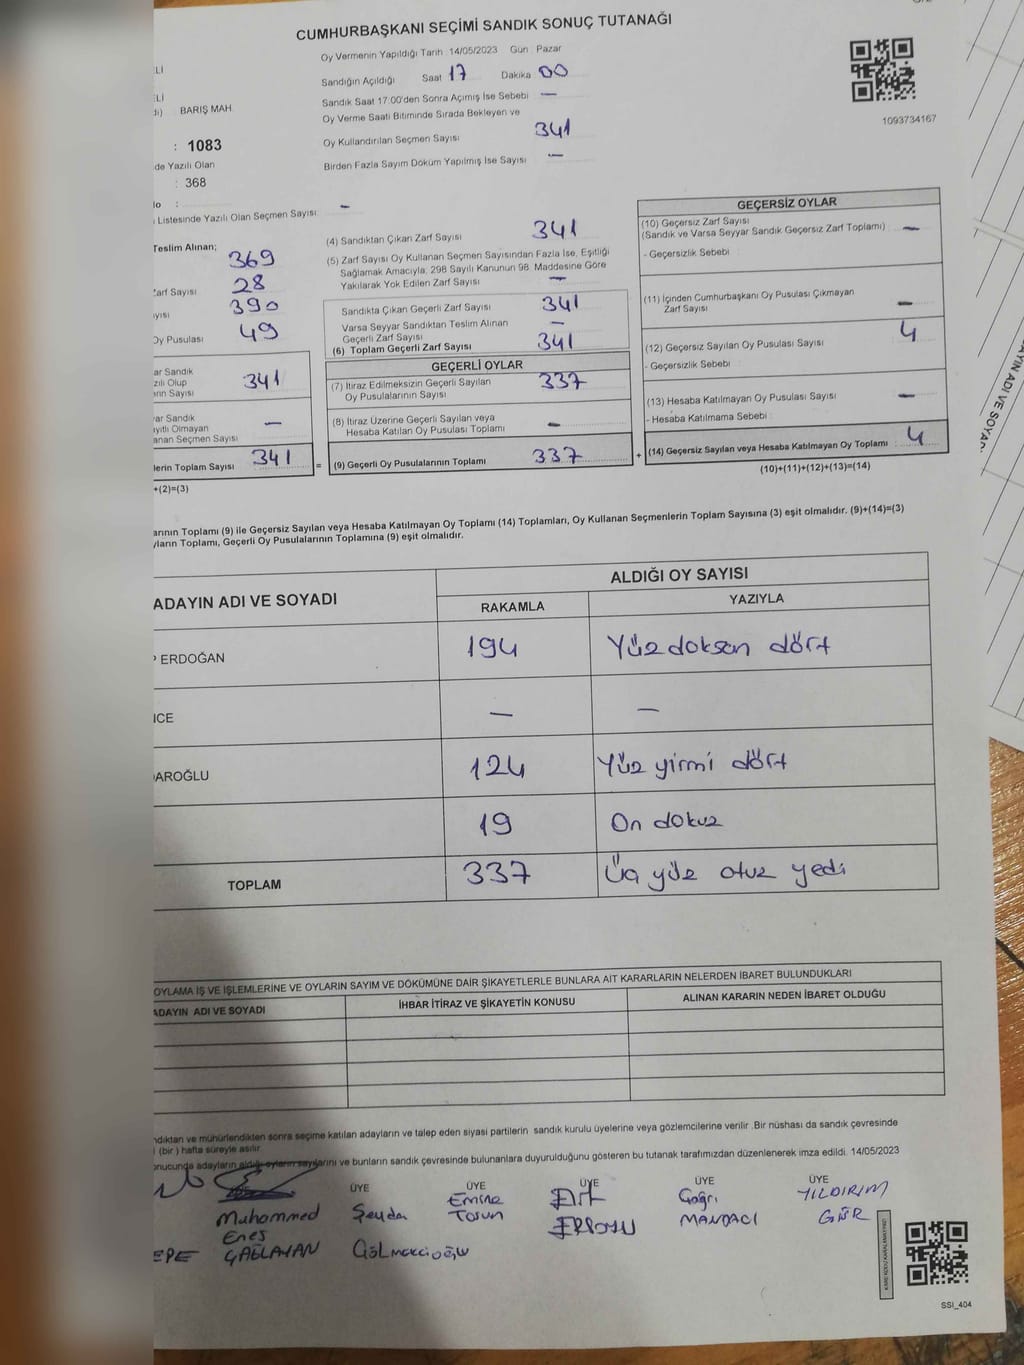 CUMHURBAŞKANI SEÇİMİ SANDIK SONUÇ TUTANAĞI
Oy Vermenin Yapıldığı Tarih 14/05/2023 Gün Pazar
Sandığın Açıldığı Saat 17 Dakika 00
Sandık Saat 17:00'den Sonra Açımış İse Sebebi —
Oy Verme Saati Bitiminde Sırada Bekleyen ve
Oy Kullandırılan Seçmen Sayısı 341
Birden Fazla Sayım Döküm Yapılmış İse Sayısı —
1093734167
BARIŞ MAH.
: 1083
de Yazılı Olan
: 368
Listesinde Yazılı Olan Seçmen Sayısı: —
Teslim Alınan;
369
Zarf Sayısı 28
390
Oy Pusulası 49
ar Sandık
zılı Olup
341
var Sandık
yıtlı Olmayan
anan Seçmen Sayısı —
lerin Toplam Sayısı 341 =
+(2)=(3)
(4) Sandıktan Çıkan Zarf Sayısı 341
(5) Zarf Sayısı Oy Kullanan Seçmen Sayısından Fazla İse, Eşitliği
Sağlamak Amacıyla, 298 Sayılı Kanunun 98. Maddesine Göre
Yakılarak Yok Edilen Zarf Sayısı —
Sandıkta Çıkan Geçerli Zarf Sayısı 341
Varsa Seyyar Sandıktan Teslim Alınan
Geçerli Zarf Sayısı —
(6) Toplam Geçerli Zarf Sayısı 341
GEÇERLİ OYLAR
(7) İtiraz Edilmeksizin Geçerli Sayılan
Oy Pusulalarının Sayısı 337
(8) İtiraz Üzerine Geçerli Sayılan veya
Hesaba Katılan Oy Pusulası Toplamı —
(9) Geçerli Oy Pusulalarının Toplamı 337 +
GEÇERSİZ OYLAR
(10) Geçersiz Zarf Sayısı
(Sandık ve Varsa Seyyar Sandık Geçersiz Zarf Toplamı) —
- Geçersizlik Sebebi
(11) İçinden Cumhurbaşkanı Oy Pusulası Çıkmayan
Zarf Sayısı —
(12) Geçersiz Sayılan Oy Pusulası Sayısı 4
- Geçersizlik Sebebi
(13) Hesaba Katılmayan Oy Pusulası Sayısı —
- Hesaba Katılmama Sebebi
(14) Geçersiz Sayılan veya Hesaba Katılmayan Oy Toplamı 4
(10)+(11)+(12)+(13)=(14)
arının Toplamı (9) ile Geçersiz Sayılan veya Hesaba Katılmayan Oy Toplamı (14) Toplamları, Oy Kullanan Seçmenlerin Toplam Sayısına (3) eşit olmalıdır. (9)+(14)=(3)
yların Toplamı, Geçerli Oy Pusulalarının Toplamına (9) eşit olmalıdır.
ADAYIN ADI VE SOYADI
ALDIĞI OY SAYISI
RAKAMLA YAZIYLA
ERDOĞAN 194 Yüz doksan dört
NCE — —
DAROĞLU 124 Yüz yirmi dört
19 On dokuz
TOPLAM 337 Üç yüz otuz yedi
OYLAMA İŞ VE İŞLEMLERİNE VE OYLARIN SAYIM VE DÖKÜMÜNE DAİR ŞİKAYETLERLE BUNLARA AİT KARARLARIN NELERDEN İBARET BULUNDUKLARI
ADAYIN ADI VE SOYADI İHBAR İTİRAZ VE ŞİKAYETİN KONUSU ALINAN KARARIN NEDEN İBARET OLDUĞU
ndıktan ve mühürlendikten sonra seçime katılan adayların ve talep eden siyasi partilerin sandık kurulu üyelerine veya gözlemcilerine verilir .Bir nüshası da sandık çevresinde
(bir) hafta süreyle asılır.
onucunda adayların aldığı oyların sayılarını ve bunların sandık çevresinde bulunanlara duyurulduğunu gösteren bu tutanak tarafımızdan düzenlenerek imza edildi. 14/05/2023
ÜYE ÜYE ÜYE ÜYE ÜYE
Muhammed Şeyda Emine Elif Çağrı YILDIRIM
Enes Tosun ERSOYU MANDACI GÜR
EPE ÇAĞLAYAN
SSI_404
AYIN ADI VE SOYAD